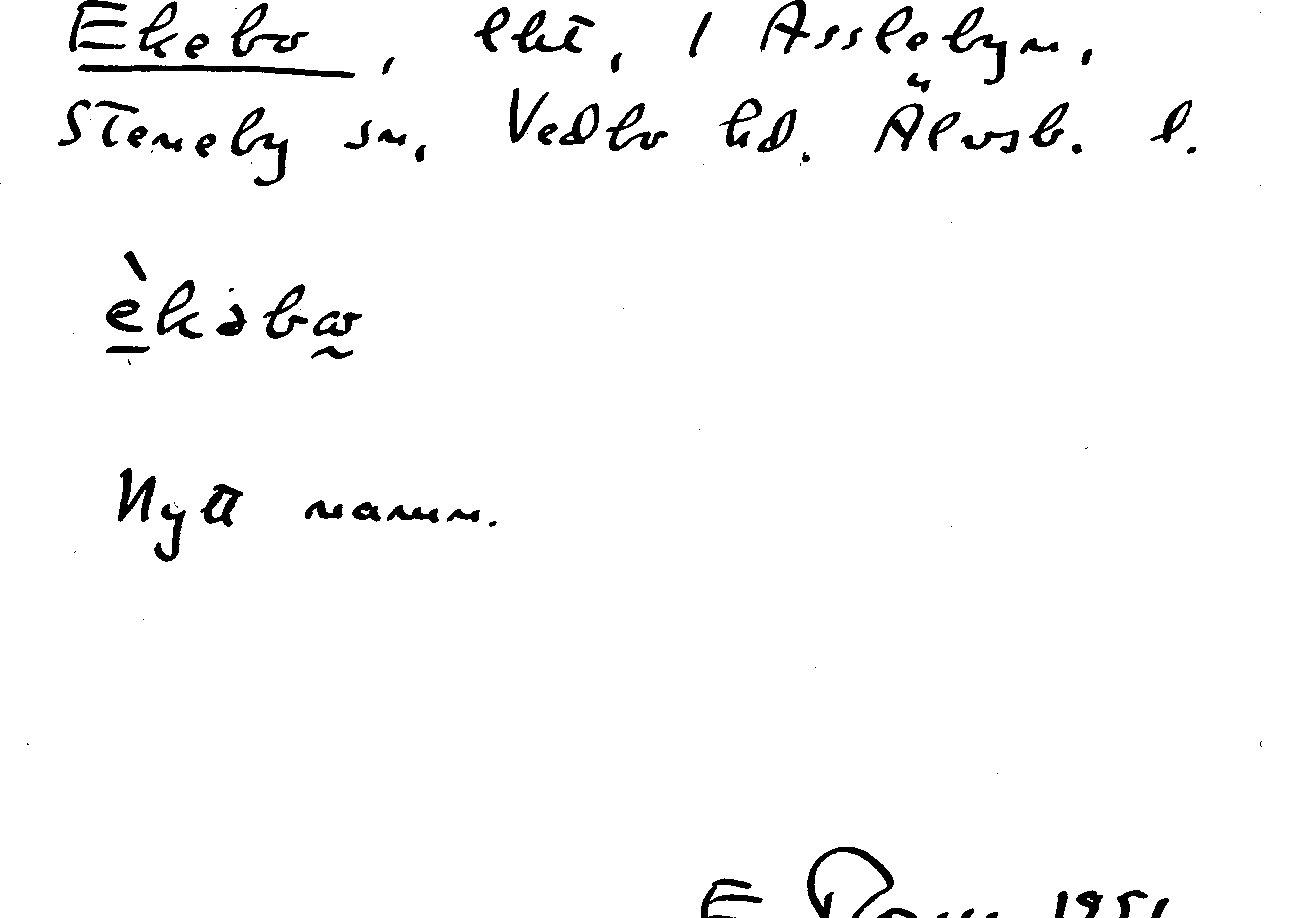 Ekebo, lht, 1 Asslebyn,
Steneby sn, Vedbo hd. Älvsb. l.
èkəbω
Nytt namn.
E